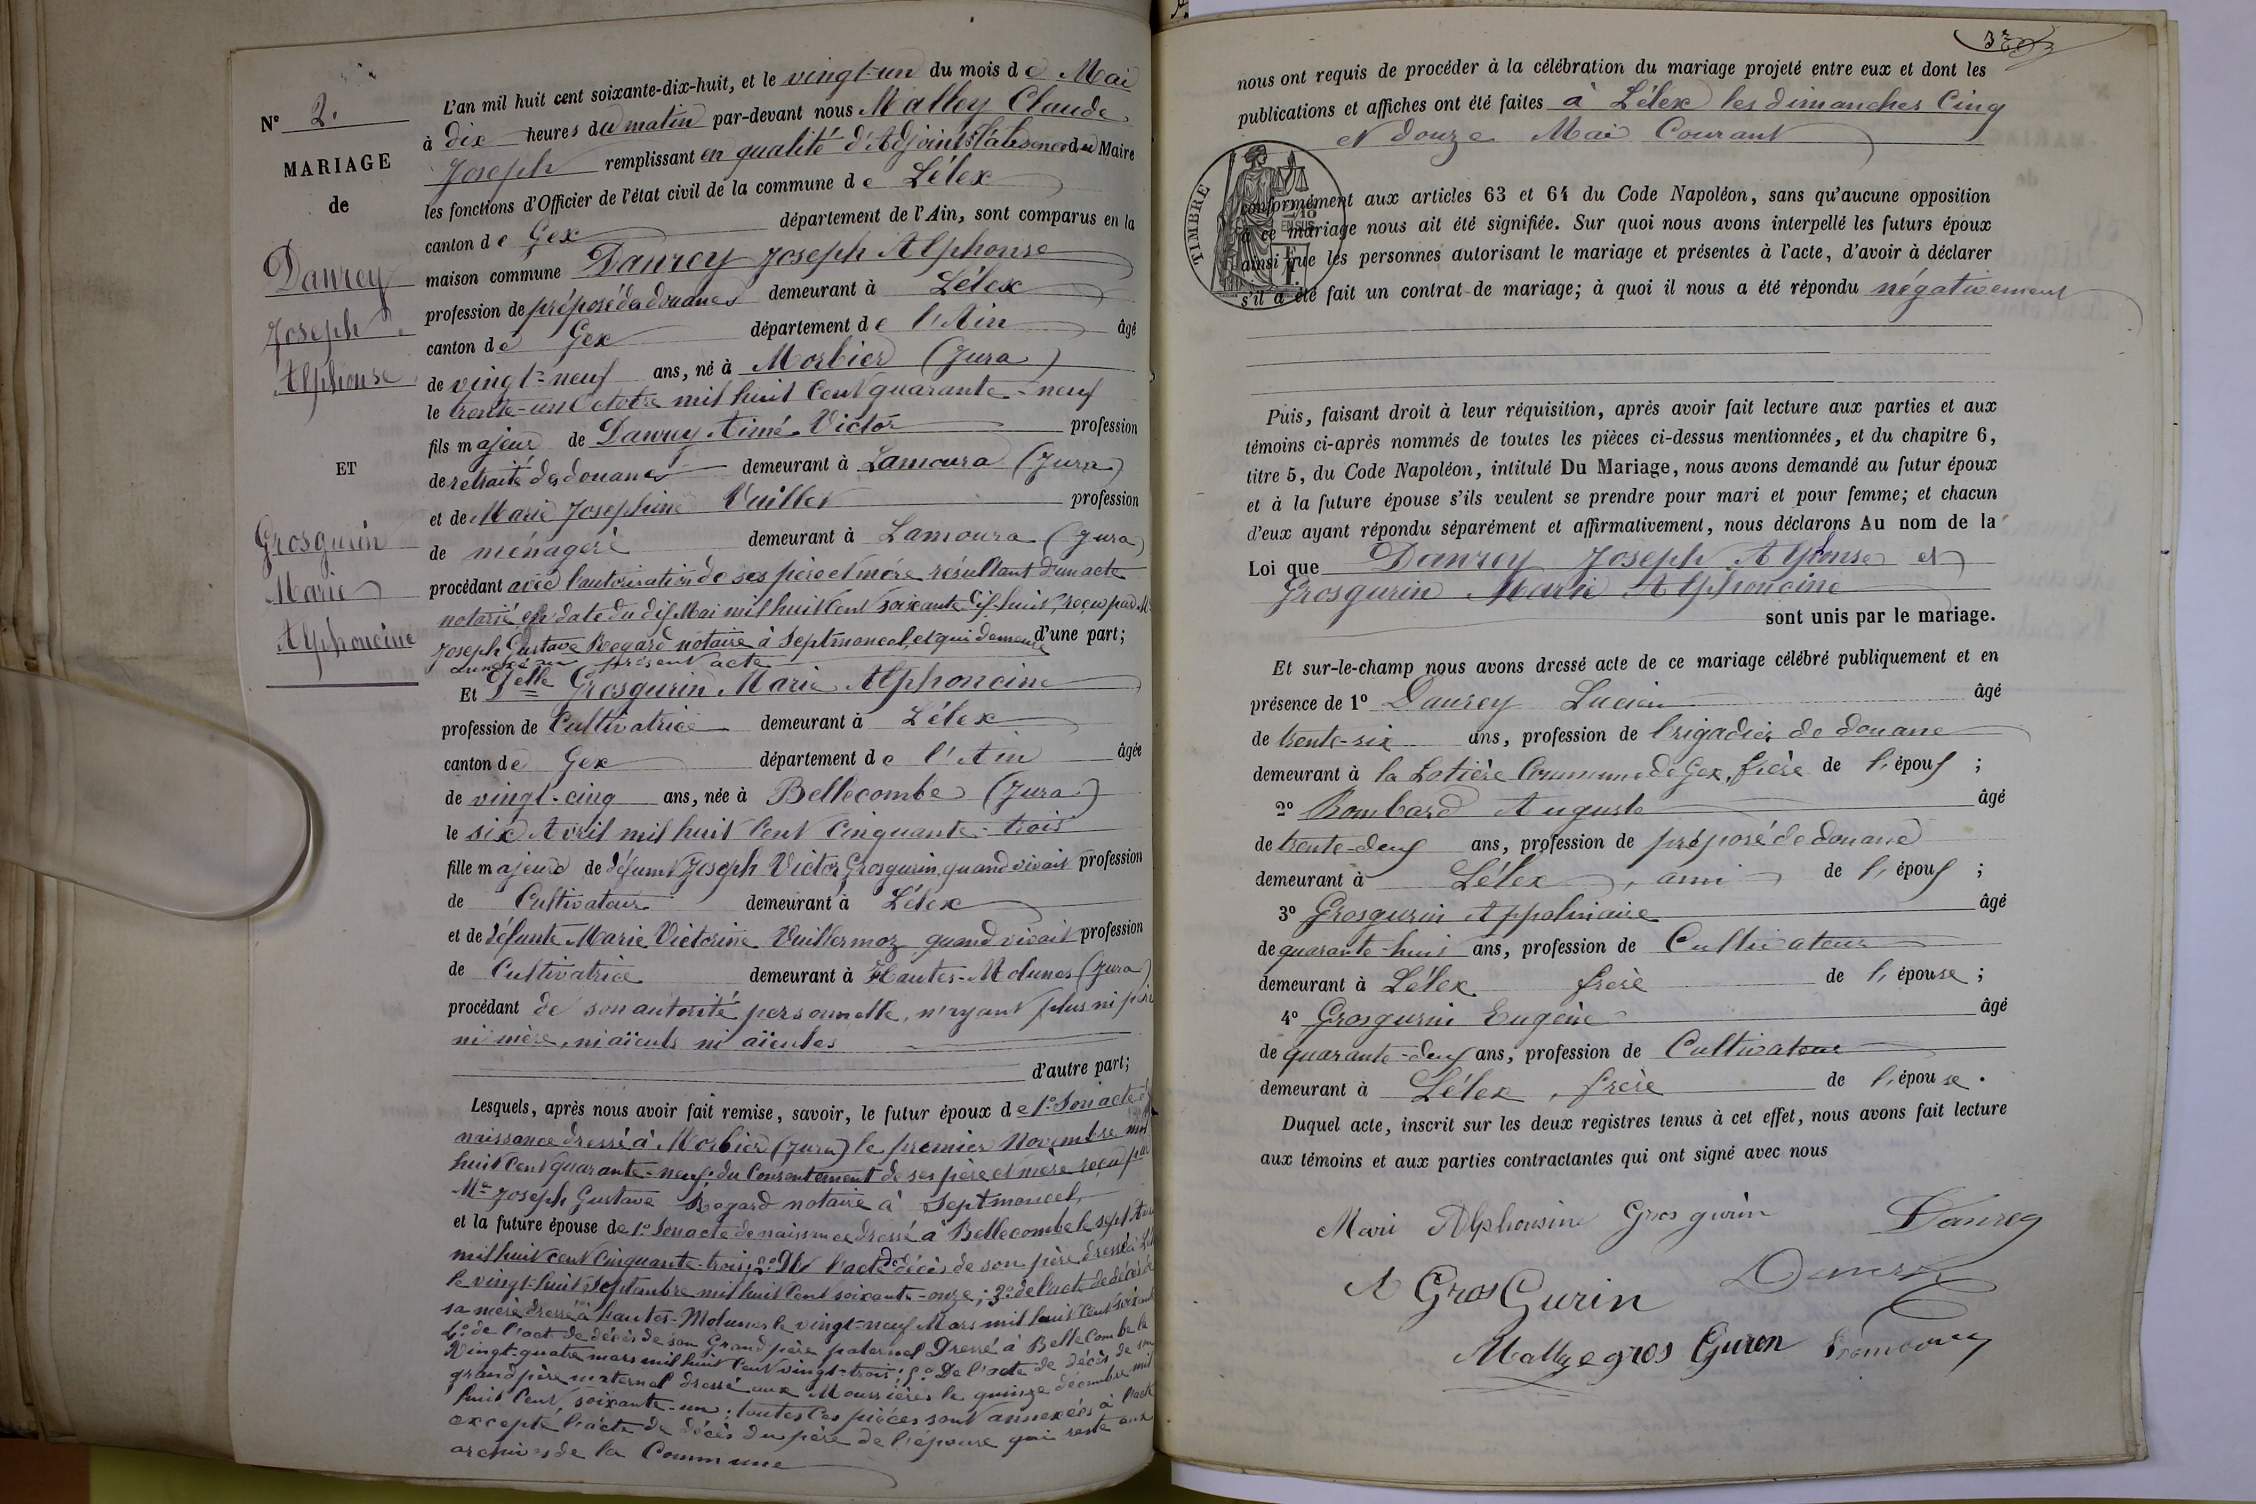 N° 2.
MARIAGE
de
Daurey
Joseph
Alphonse
ET
Grosgurin
Marie
Alphoncine
L'an mil huit cent soixante-dix-huit, et le vingt-un du mois de Mai
à dix heures du matin par-devant nous Malley Claude
Joseph remplissant en qualité d'Adjoint du Maire
les fonctions d'Officier de l'état civil de la commune de Lélex
canton de Gex département de l'Ain, sont comparus en la
maison commune Daurey Joseph Alphonse
profession de préposé des douanes demeurant à Lélex
canton de Gex département de l'Ain âgé
de vingt-neuf ans, né à Morbier (Jura)
le trente-un Octobre mil huit cent quarante-neuf
fils majeur de Daurey Aimé Victor profession
de retraité des douanes demeurant à Lamoura (Jura)
et de Marie Josephine Vuillet profession
de ménagère demeurant à Lamoura (Jura)
procédant avec l'autorisation de ses père et mère résultant d'un acte
notarié en date du dix Mai mil huit cent soixante dix huit, reçu par Me
Joseph Gustave Regard notaire à Septmoncel, et qui demeure d'une part;
annexé au présent acte
Et Delle Grosgurin Marie Alphoncine
profession de Cultivatrice demeurant à Lélex
canton de Gex département de l'Ain âgée
de vingt-cinq ans, née à Bellecombe (Jura)
le six Avril mil huit cent cinquante-trois
fille majeure de défunt Joseph Victor Grosgurin, quand vivait profession
de Cultivateur demeurant à Lélex
et de défunte Marie Victorine Vuillermoz quand vivait profession
de Cultivatrice demeurant à Hautes-Molunes (Jura)
procédant de son autorité personnelle, n'ayant plus ni père
ni mère, ni aïeuls ni aïeules
d'autre part;
Lesquels, après nous avoir fait remise, savoir, le futur époux de 1° Son acte de
naissance dressé à Morbier (Jura) le premier Novembre mil
huit cent quarante-neuf. du Consentement de ses père et mère reçu par
Me Joseph Gustave Regard notaire à Septmoncel,
et la future épouse de 1° Son acte de naissance dressé à Bellecombe le sept Avril
mil huit cent cinquante-trois; 2° De l'acte de décès de son père dressé à
le vingt-huit Septembre mil huit cent soixante-onze; 3° de l'acte de décès de
sa mère dressé à hautes-Molunes le vingt-neuf Mars mil huit cent soixante
4° de l'act de décès de son Grand père paternel Dressé à Bellecombe le
Vingt-quatre mars mil huit cent vingt-trois; 5° De l'acte de décès de son
grand père maternel dressé aux Moussières le quinze décembre mil
huit cent, soixante-un; toutes les pièces sont annexées à l'acte
excepté l'acte de décès du père de l'épouse qui reste aux
archives de la Commune
nous ont requis de procéder à la célébration du mariage projeté entre eux et dont les
publications et affiches ont été faites à Lélex les dimanches Cinq
et douze Mai Courant
TIMBRE
conformément aux articles 63 et 64 du Code Napoléon, sans qu'aucune opposition
à ce mariage nous ait été signifiée. Sur quoi nous avons interpellé les futurs époux
ainsi que les personnes autorisant le mariage et présentes à l'acte, d'avoir à déclarer
s'il a été fait un contrat de mariage; à quoi il nous a été répondu négativement
Puis, faisant droit à leur réquisition, après avoir fait lecture aux parties et aux
témoins ci-après nommés de toutes les pièces ci-dessus mentionnées, et du chapitre 6,
titre 5, du Code Napoléon, intitulé Du Mariage, nous avons demandé au futur époux
et à la future épouse s'ils veulent se prendre pour mari et pour femme; et chacun
d'eux ayant répondu séparément et affirmativement, nous déclarons Au nom de la
Loi que Daurey Joseph Alphonse et
Grosgurin Marie Alphoncine
sont unis par le mariage.
Et sur-le-champ nous avons dressé acte de ce mariage célébré publiquement et en
présence de 1° Daurey Lucien âgé
de trente-six ans, profession de brigadier de douane
demeurant à la Lotière Commune de Gex, frère de l'époux ;
2° Bombard Auguste âgé
de trente-deux ans, profession de préposé de douane
demeurant à Lélex, ami de l'époux ;
3° Grosgurin Appolinaire âgé
de quarante-huit ans, profession de Cultivateur
demeurant à Lélex frère de l'épouse ;
4° Grosgurin Eugène âgé
de quarante-deux ans, profession de Cultivateur
demeurant à Lélex, frère de l'épouse.
Duquel acte, inscrit sur les deux registres tenus à cet effet, nous avons fait lecture
aux témoins et aux parties contractantes qui ont signé avec nous
Marie Alphonsine Grosgurin Daurey
A GrosGurin Daurey
Malley e gros Guren